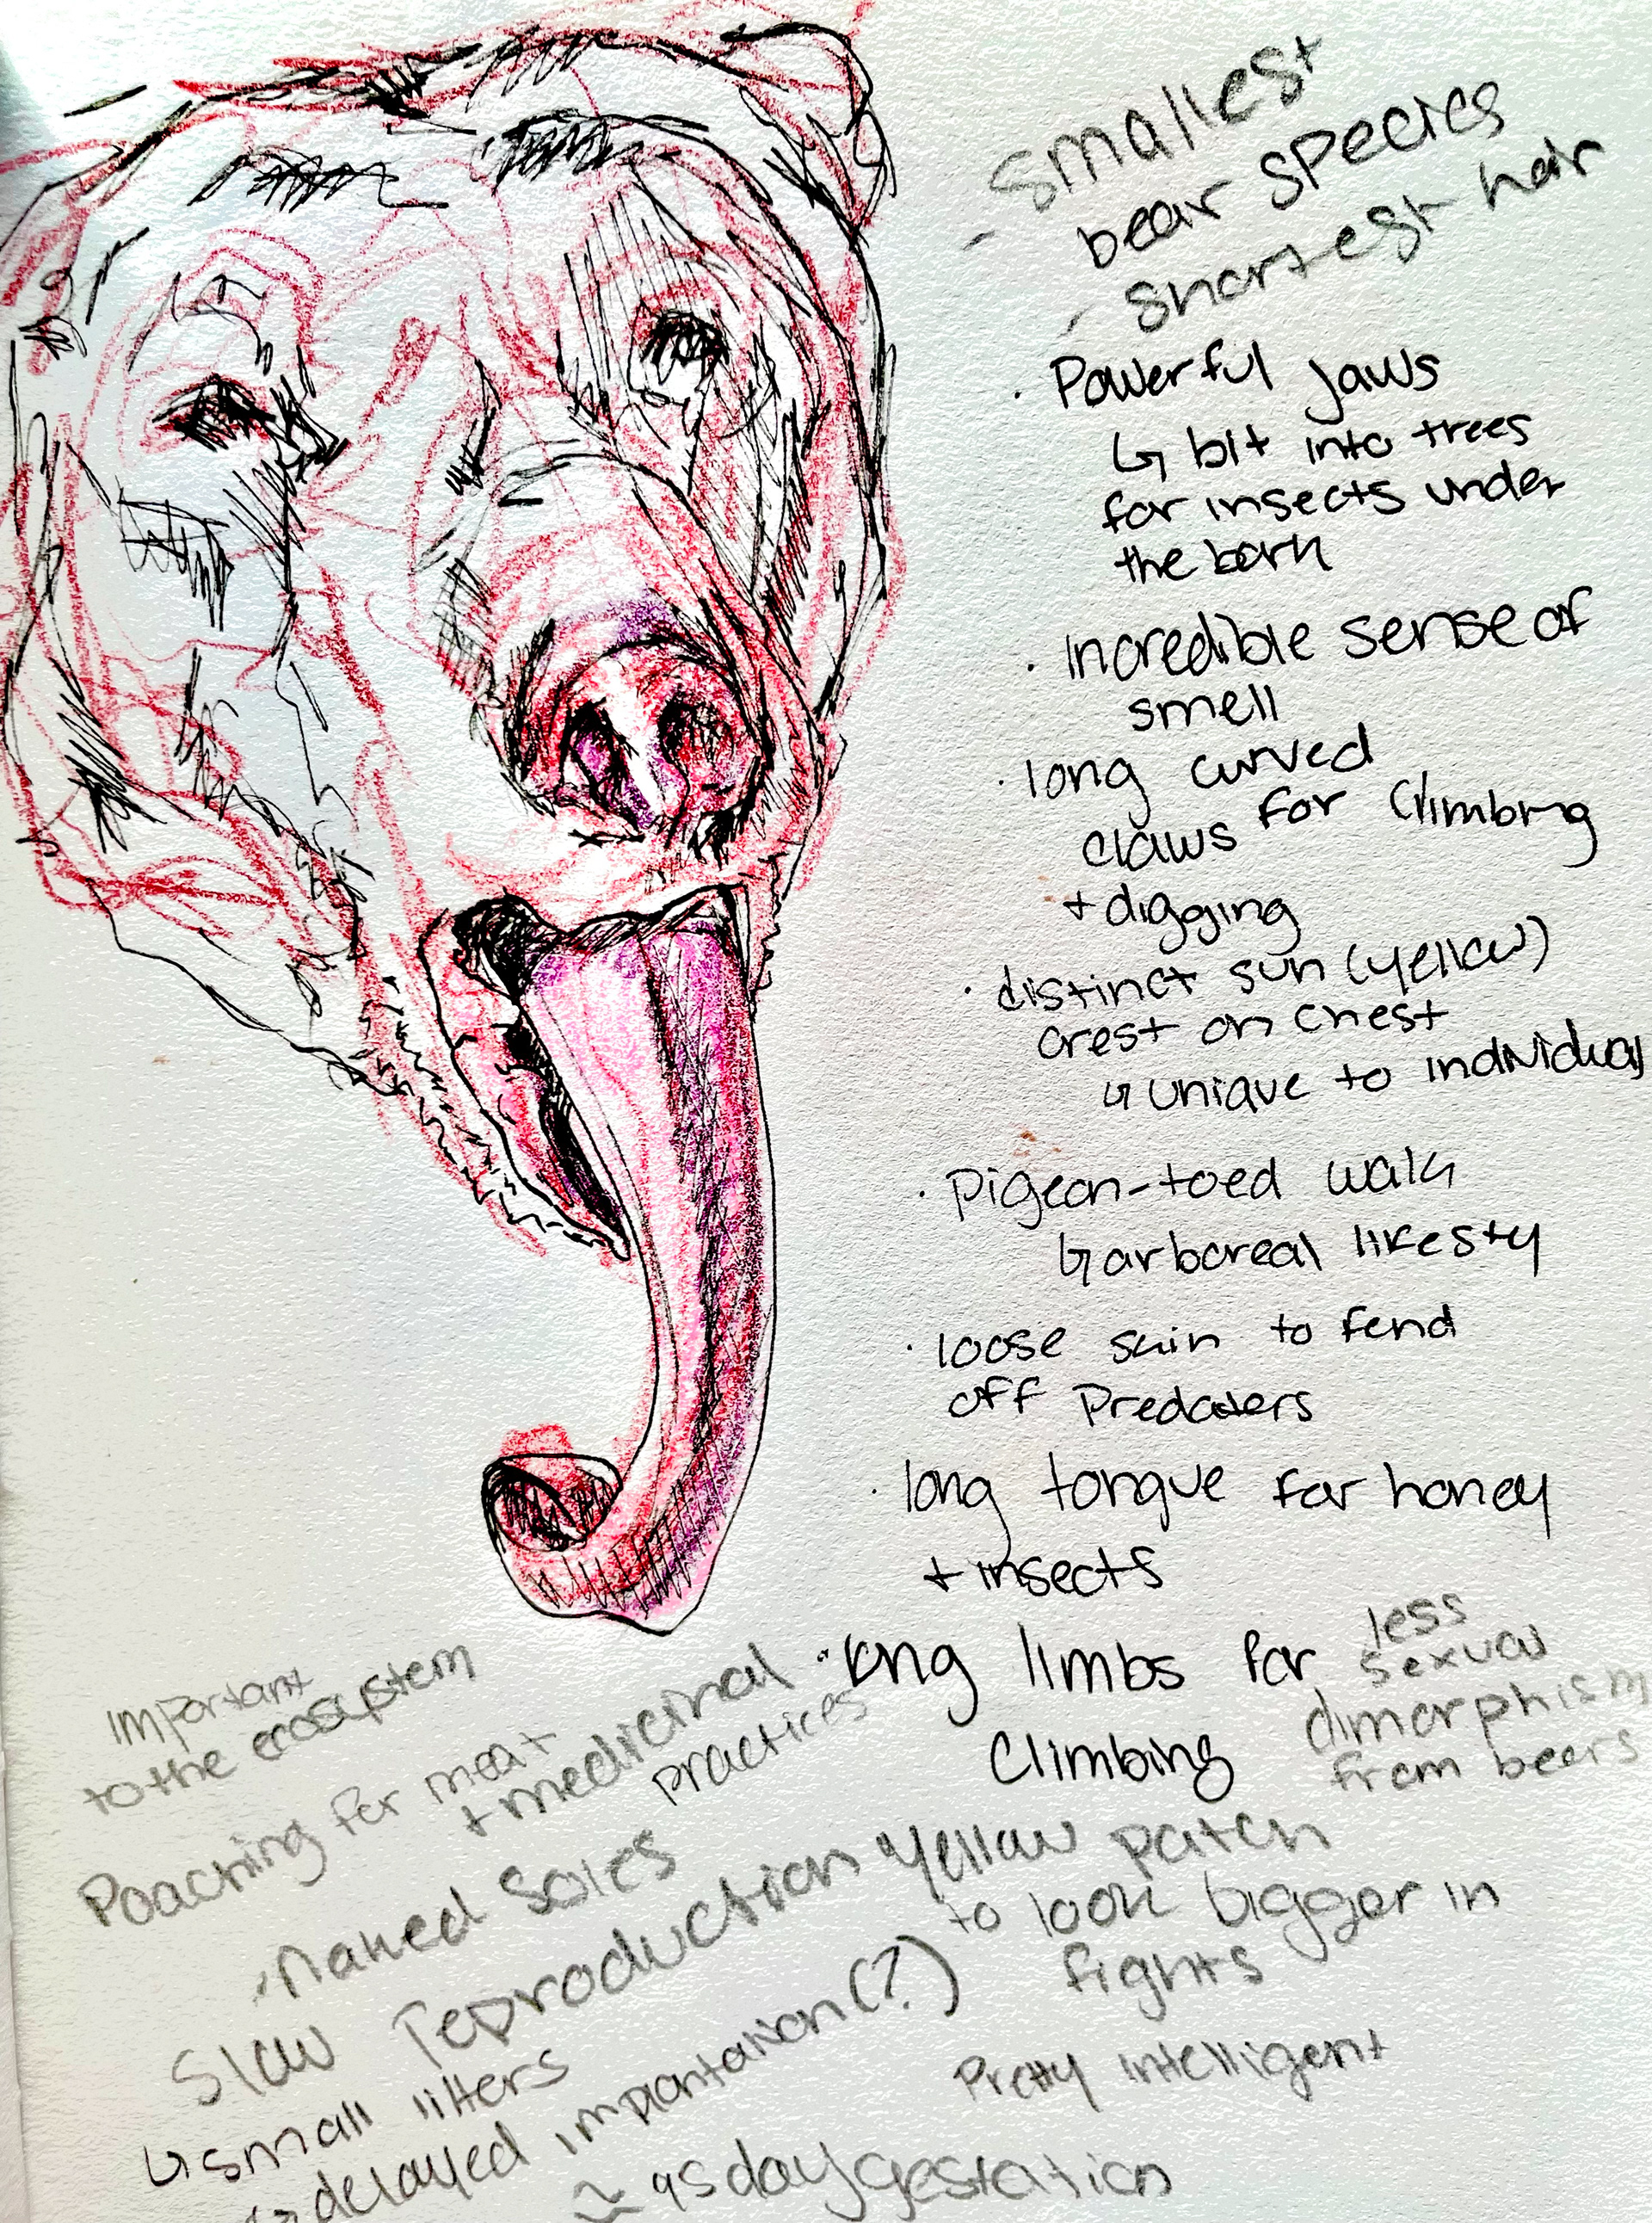 - smallest
bear species
- shortest hair
· Powerful jaws
↳ bit into trees
for insects under
the bark
· Incredible sense of
smell
· long curved
claws for climbing
+ digging
· distinct sun (yellow)
crest on chest
↳ unique to individual
· pigeon-toed walk
↳ arboreal likesty
· loose skin to fend
off Predaters
· long tongue for honey
+ insects
· long limbs for
Climbing
less
sexual
dimorphism
from bears
Important
to the ecosystem
Poaching for meat
+ medicinal
practices
- naked soles
Slow reproduction
↳ small litters
↳ delayed implantation (?)
≈ 95 day gestation
yellow patch
to look bigger in
fights
Pretty intelligent